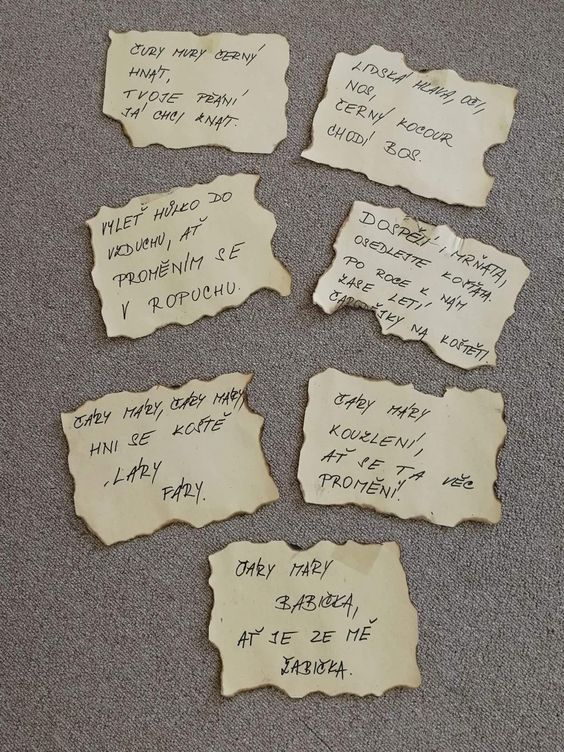 ČURY MURY ČERNÝ
HNÁT,
TVOJE PŘÁNÍ
JÁ CHCI ZNÁT.
LIDSKÁ HLAVA, OČI,
NOS,
ČERNÝ KOCOUR
CHODÍ BOS.
VYLEŤ HŮLKO DO
VZDUCHU, AŤ
PROMĚNÍM SE
V ROPUCHU.
DOSPĚLÍ, MRŇATA,
OSEDLEJTE KOŠŤATA.
PO ROCE K NÁM
ZASE LETÍ
ČARODĚJKY NA KOŠTĚTI.
ČÁRY MÁRY, ČÁRY MÁRY
HNI SE KOŠTĚ
LÁRY
FÁRY.
ČÁRY MÁRY
KOUZLENÍ,
AŤ SE TA VĚC
PROMĚNÍ.
ČÁRY MÁRY
BABIČKA,
AŤ JE ZE MĚ
ŽABIČKA.